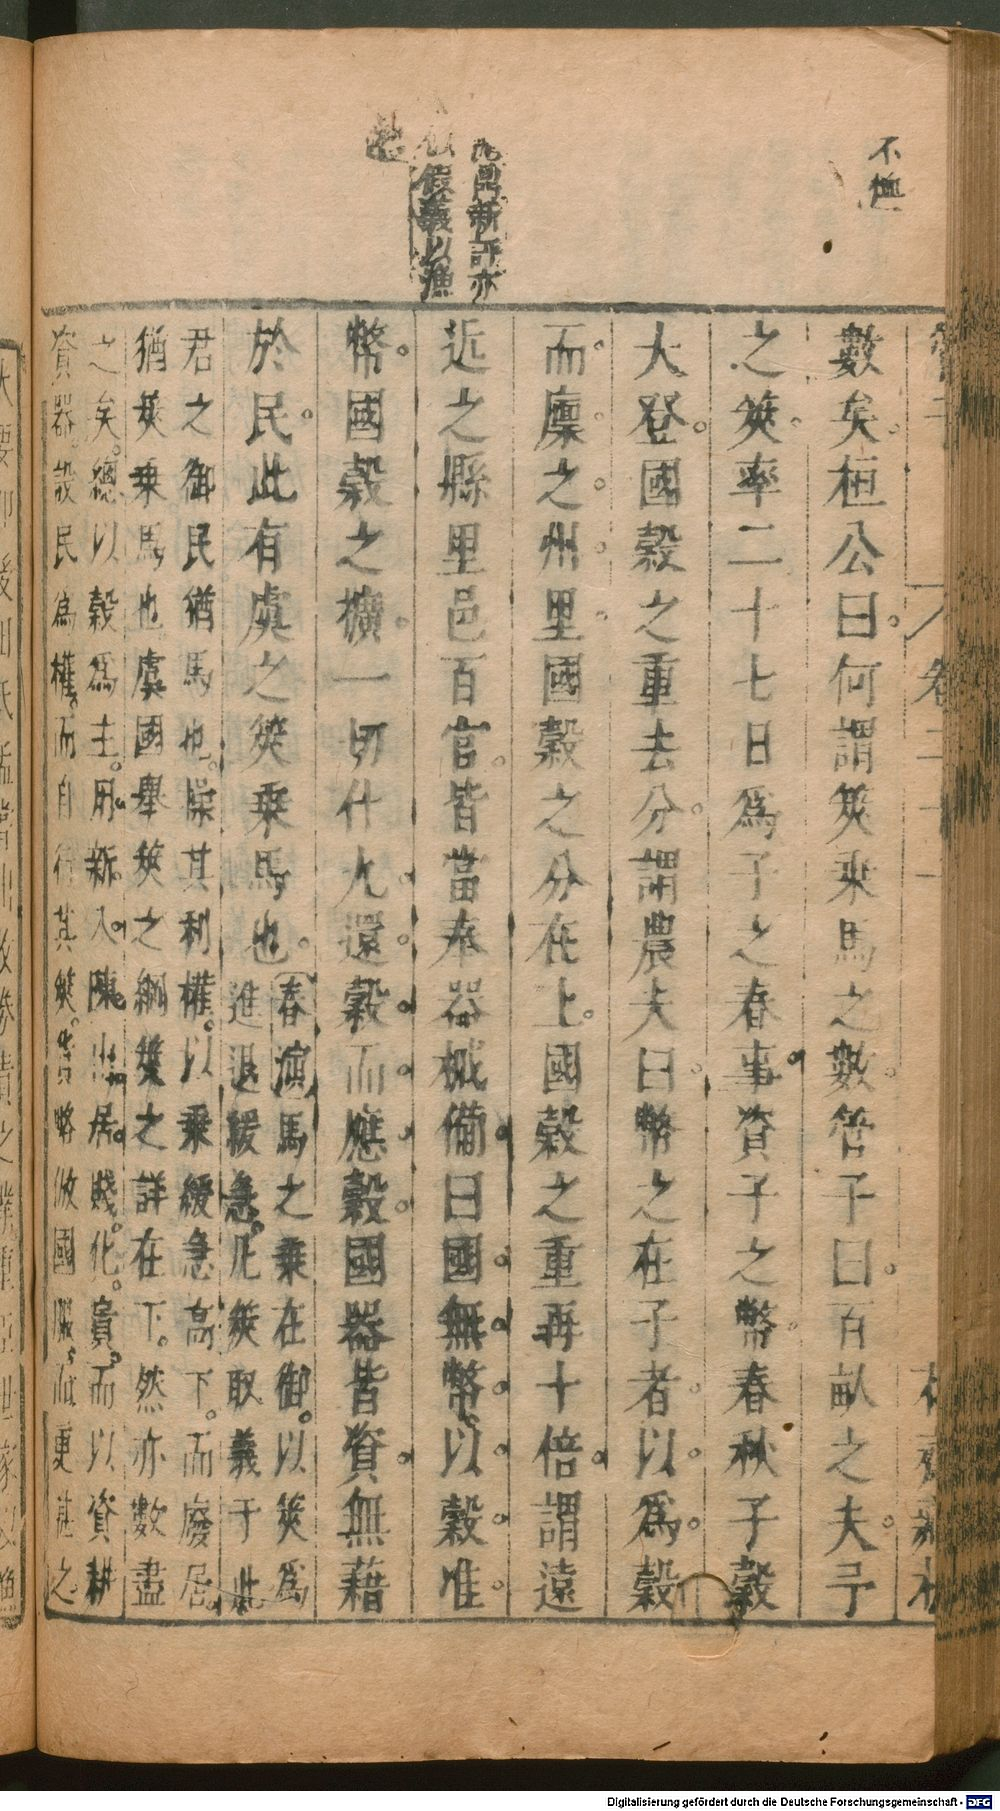 不無
鼎新評亦
假義以漁
卷二十一
數矣桓公曰何謂筴乘馬之數管子曰百畝之夫予
之筴率二十七日爲子之春事資子之幣春秋子穀
大登國穀之重去分謂農夫曰幣之在子者以爲穀
而廩之州里國穀之分在上國穀之重再十倍謂遠
近之縣里邑百官皆當奉器械備曰國無幣以穀准
幣國穀之櫎一切什九還穀而應穀國器皆資無藉
於民此有虞之筴乘馬也
春演馬之乘在御以筴爲
進退緩急凡筴取義于此
君之御民猶馬也操其利權以乘緩急高下而廢居
猶筴乘馬也虞國舉筴之綱筴之詳在下然亦數盡
之矣總以穀爲主用新入陳出居賤化貴而以資耕
資器設民爲權而自行其筴貨略倣國服而更甚之
Digitalisierung gefördert durch die Deutsche Forschungsgemeinschaft - DFG